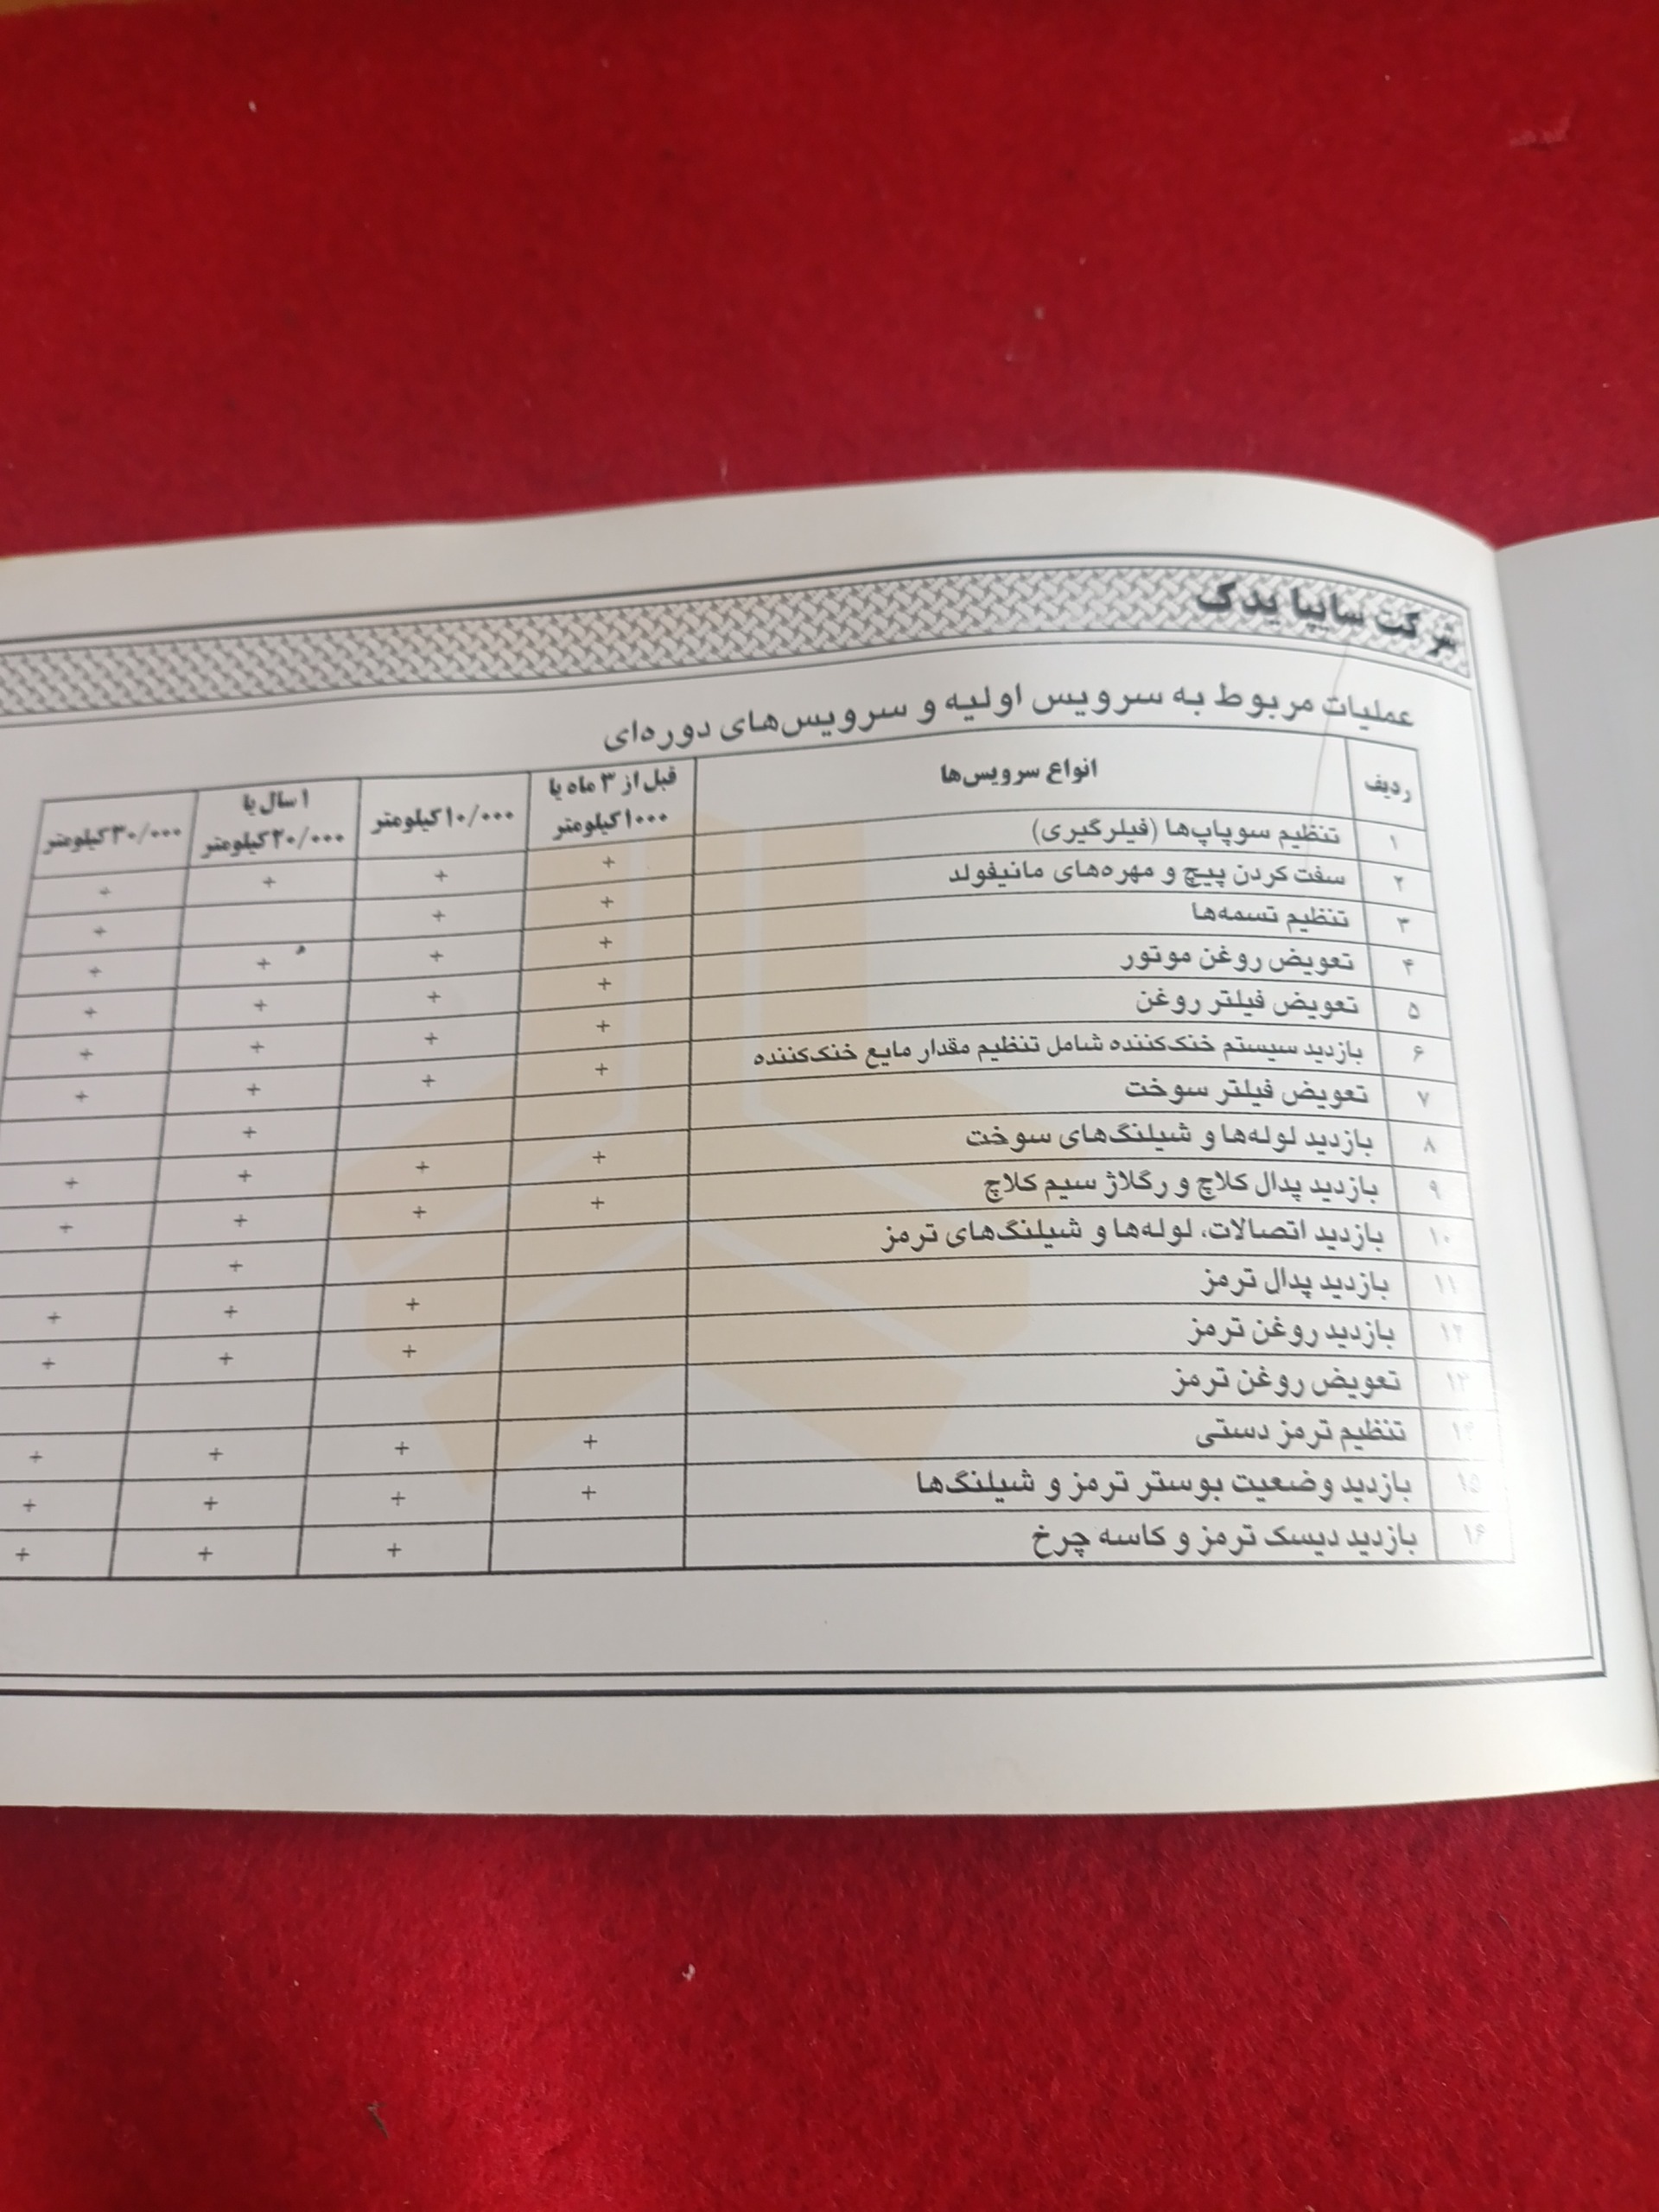 شرکت سایپا یدک
عملیات مربوط به سرویس اولیه و سرویس‌های دوره‌ای
ردیف انواع سرویس‌ها قبل از ۳ ماه یا ۱۰۰۰ کیلومتر ۱۰/۰۰۰ کیلومتر ۱ سال یا ۲۰/۰۰۰ کیلومتر ۳۰/۰۰۰ کیلومتر
۱ تنظیم سوپاپ‌ها (فیلرگیری) + + + +
۲ سفت کردن پیچ و مهره‌های مانیفولد + + +
۳ تنظیم تسمه‌ها + + + +
۴ تعویض روغن موتور + + + +
۵ تعویض فیلتر روغن + + + +
۶ بازدید سیستم خنک‌کننده شامل تنظیم مقدار مایع خنک‌کننده + + + +
۷ تعویض فیلتر سوخت +
۸ بازدید لوله‌ها و شیلنگ‌های سوخت + + + +
۹ بازدید پدال کلاچ و رگلاژ سیم کلاچ + + + +
۱۰ بازدید اتصالات، لوله‌ها و شیلنگ‌های ترمز +
۱۱ بازدید پدال ترمز + + +
۱۲ بازدید روغن ترمز + + +
۱۳ تعویض روغن ترمز
۱۴ تنظیم ترمز دستی + + + +
۱۵ بازدید وضعیت بوستر ترمز و شیلنگ‌ها + + + +
۱۶ بازدید دیسک ترمز و کاسه چرخ + + +